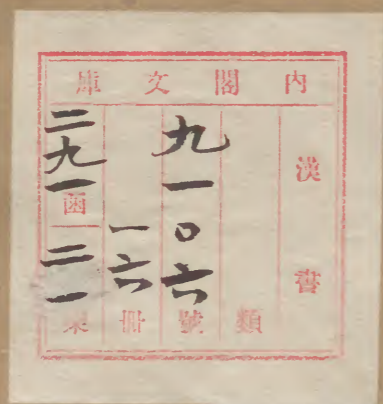 内閣文庫
漢書
類
九一〇六號
一六冊
二九一函
二一架